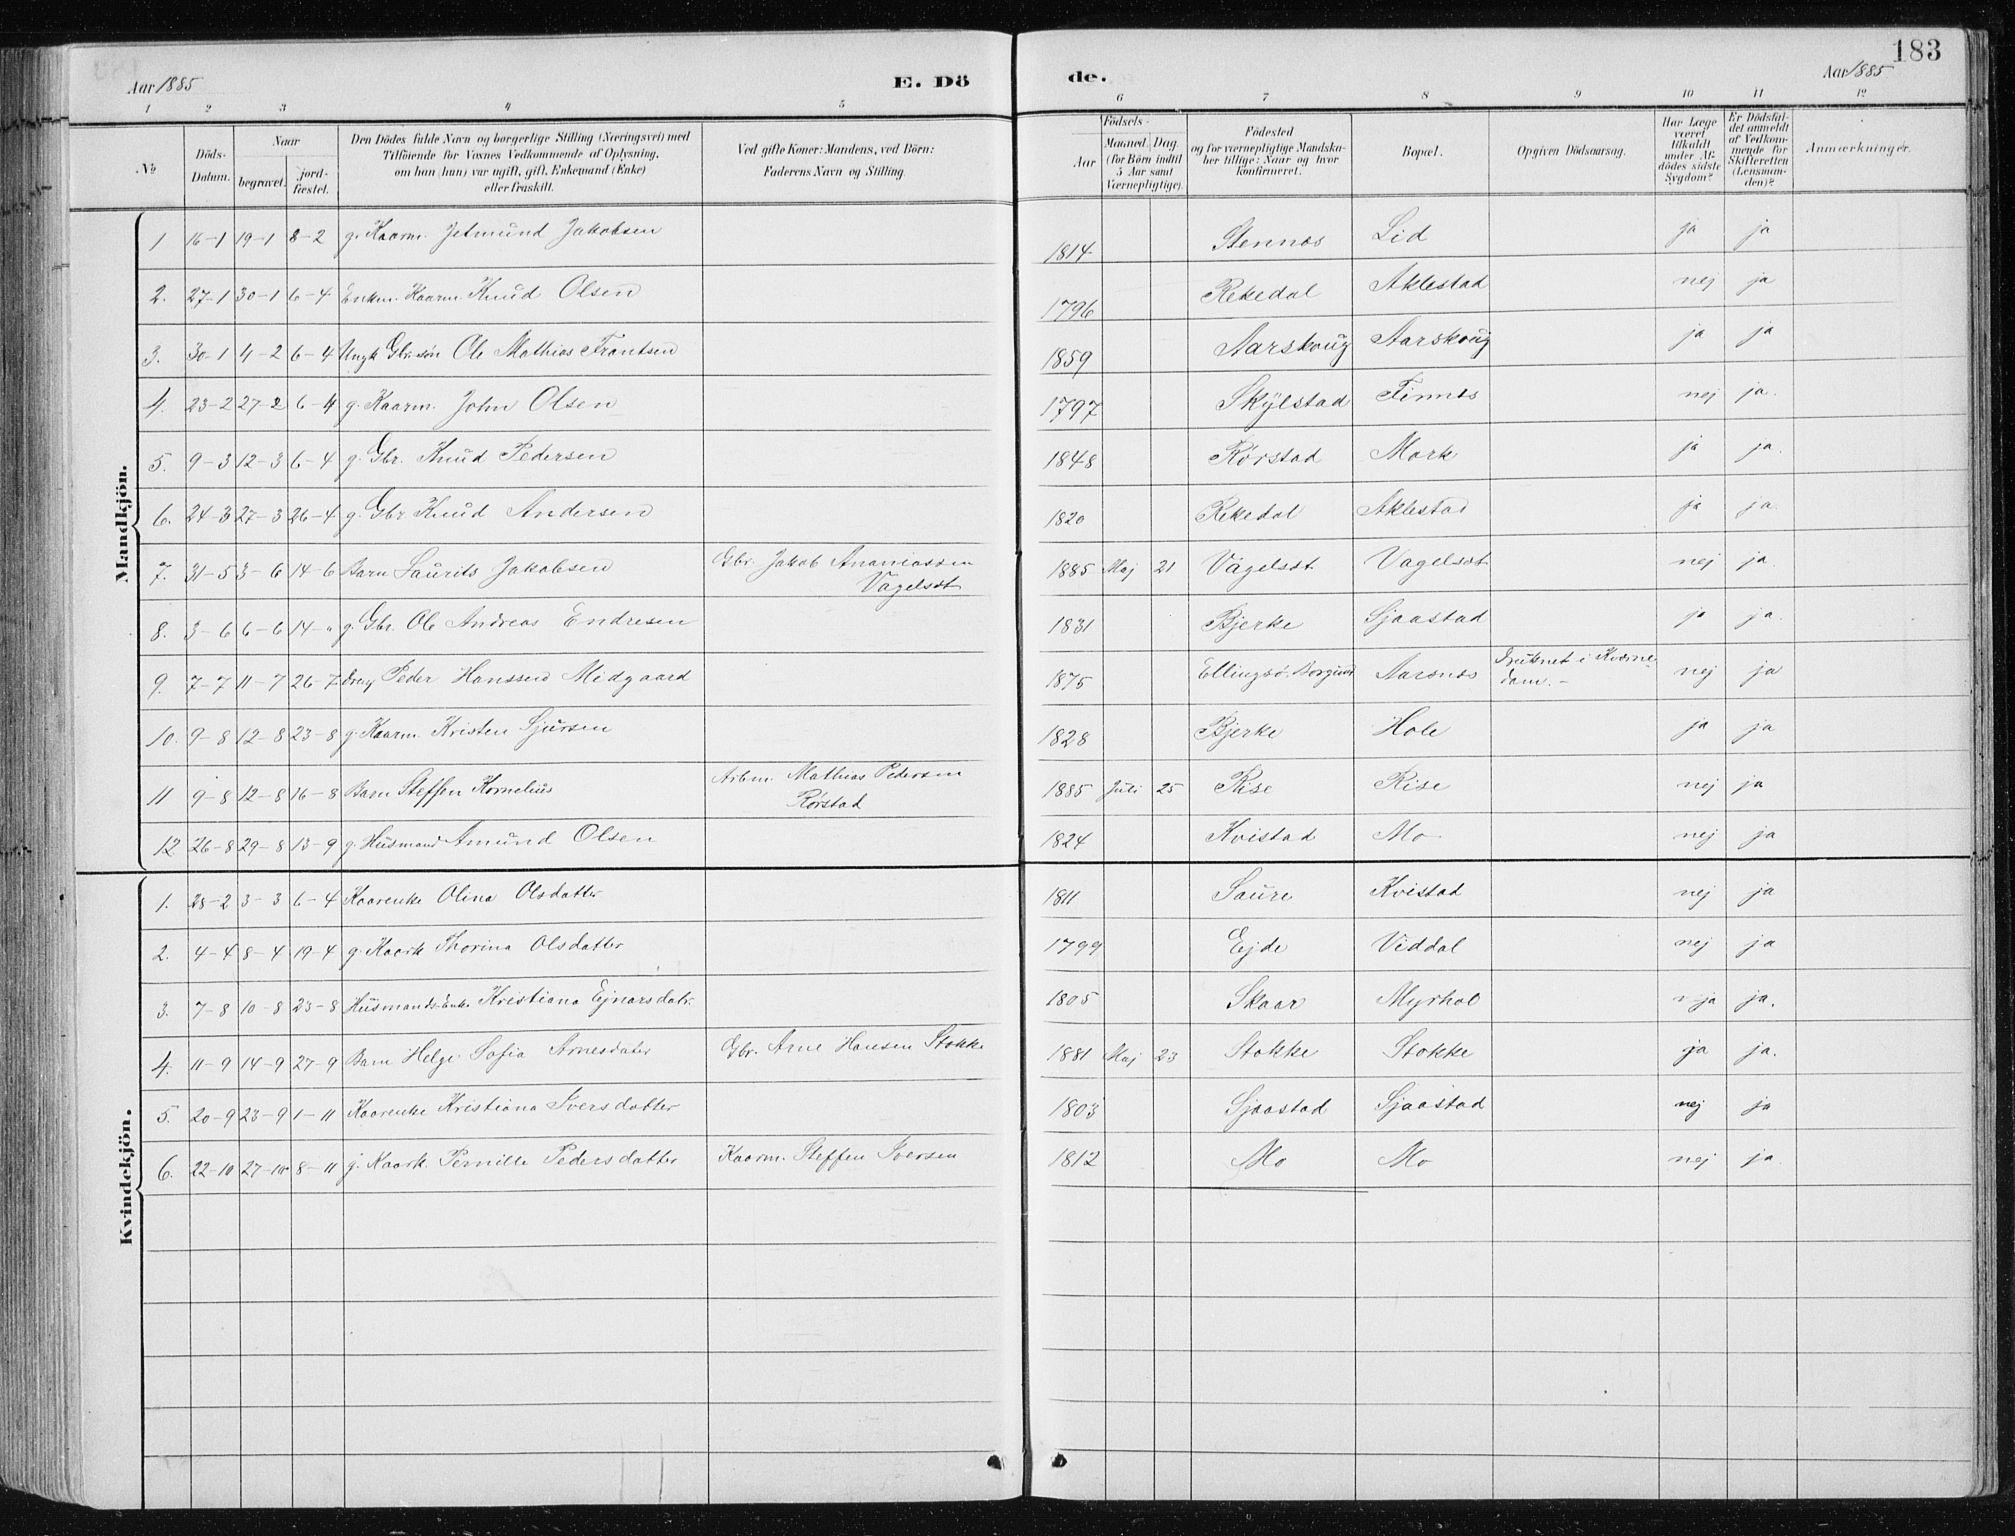 183
Aar 1885 E. Dö de. Aar 1885
1 2 3 4 5 6 7 8 9 10 11 12
No
Döds-Datum.
Naar
begravet. jordfæstet.
Den Dödes fulde Navn og borgerlige Stilling (Næringsvei) med
Tilföiende for Voxnes Vedkommende af Oplysning,
om han (hun) var ugift, gift, Enkemand (Enke)
eller fraskilt.
Ved gifte Koner: Mandens, ved Börn:
Faderens Navn og Stilling.
Födsels-
Aar
Maaned. Dag.
(for Börn indtil
5 Aar samt
Værnepligtige).
Födested
og for værnepligtige Mandska-
ber tillige: Naar og hvor
konfirmeret.
Bopæl.
Opgiven Dödsaarsag.
Har Læge
været
tilkaldt
under Af-
dödes sidste
Sygdom?
Er Dödsfal-
det anmeldt
af Vedkom-
mende for
Skifteretten
(Lensman-
den)?
Anmærkninger.
Mandkjön.
1 16-1 19-1 8-2 g. Kaarm. Jetmund Jakobsen 1814 Stennes Lid ja ja
2. 27-1 30-1 6-4 Enkm. Kaarm. Knud Olsen 1796 Rekedal Aklestad nej ja
3. 30-1 4-2 6-4 Ungk Gbr.søn Ole Mathias Frantsen 1859 Aarskoug Aarskoug ja ja
4. 23-2 27-2 6-4 g. Kaarm. John Olsen 1797 Skylstad Finnes nej ja.
5. 9-3 12-3 6-4 g. Gbr. Knud Pedersen 1848 Rørstad Mork ja ja.
6. 24-3 27-3 26-4 g. Gbr Knud Andersen 1820 Rekedal Aklestad ja ja.
7. 31-5 3-6 14-6 Barn Laurits Jakobsen Gbr. Jakob Ananiassen 1885 Maj 21 Vagelsæt Vagelsæt nej ja.
Vagelsæt
8. 3-6 6-6 14-" g. Gbr. Ole Andreas Endresen 1831 Bjerke Sjaastad ja ja.
9. 7-7 11-7 26-7 Dreng Peder Hanssen Midgaard 1875 Ellingsø. Borgund Aarsnes Druknet i Kværne-
dam. nej ja
10. 9-8 12-8 23-8 g. Kaarm. Kristen Sjursen 1828 Bjerke Hole ja ja
11 9-8 12-8 16-8 Barn Steffen Kornelius Arbm. Mathias Pedersen 1885 Juli 25 Rise Rise nej ja
Rørstad
12 26-8 29-8 13-9 g. Husmand Amund Olsen 1824 Kvistad Mo nej ja
Kvindekjön.
1. 28-2 3-3 6-4 Kaarenke Olina Olsdatter 1811 Saure Kvistad nej ja
2. 4-4 8-4 19-4 g. Kaark Thorina Olsdatter 1799 Ejde Viddal nej ja
3. 7-8 10-8 23-8 Husmands-Enke Kristiana Ejnarsdatr. 1805 Skaar Myrhol ja ja.
4. 11-9 14-9 27-9 Barn Helge Sofia Arnesdater Gbr. Arne Hansen Stokke 1881 Maj 23 Stokke Stokke ja ja.
5. 20-9 23-9 1-11 Kaarenke Kristiana Iversdatter 1803 Sjaastad Sjaastad nej ja
6. 22-10 27-10 8-11 g. Kaark. Pernille Pedersdatter Kaarm. Steffen Iversen 1812 Mo Mo nej ja.